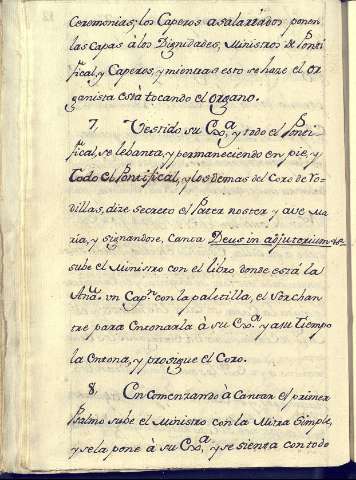 Ceremonias; los Caperos asalariados ponen
las Capas à los Dignidades, Ministros de Ponti
fical, y Caperos, y mientras esto se haze el or
ganista està tocando el organo.
7, Vestido su Exª, y todo el Ponti
fical, se lebanta, y permaneciendo en pie, y
todo el Pontifical, y los demas del Coro de ro-
dillas, dize secreto el Pater noster y ave ma
ria, y signandose, canta Deus in adjutorium &c
sube el Ministro con el libro donde está la
Anª. un Capn. con la paletilla, el Sochan
tre para entonarla à su Exª. y a su tiempo
la entona, y prosigue el Coro.
8, En comenzando à cantar el primer
Psalmo sube el Ministro con la Mitra simple,
y se la pone à su Exª, y se sienta con todo